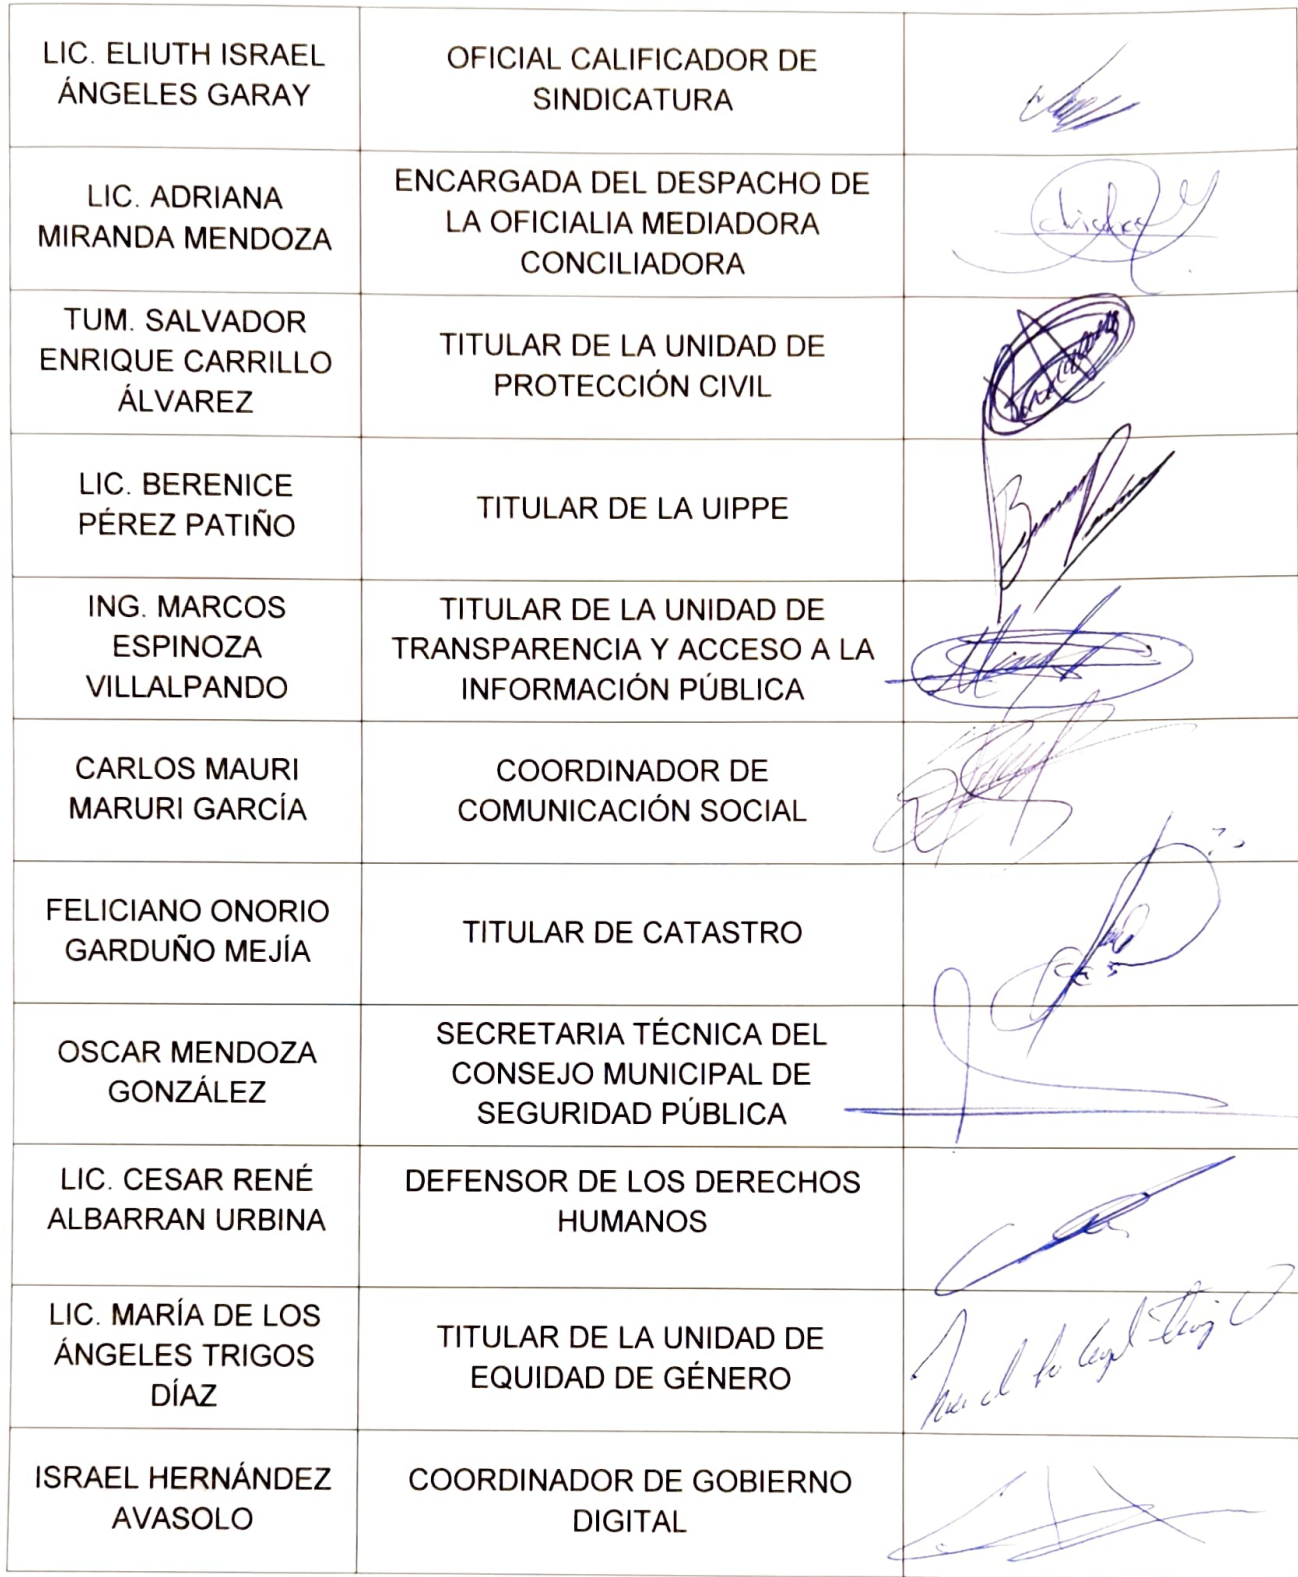 LIC. ELIUTH ISRAEL
ÁNGELES GARAY
OFICIAL CALIFICADOR DE
SINDICATURA
LIC. ADRIANA
MIRANDA MENDOZA
ENCARGADA DEL DESPACHO DE
LA OFICIALIA MEDIADORA
CONCILIADORA
TUM. SALVADOR
ENRIQUE CARRILLO
ÁLVAREZ
TITULAR DE LA UNIDAD DE
PROTECCIÓN CIVIL
LIC. BERENICE
PÉREZ PATIÑO
TITULAR DE LA UIPPE
ING. MARCOS
ESPINOZA
VILLALPANDO
TITULAR DE LA UNIDAD DE
TRANSPARENCIA Y ACCESO A LA
INFORMACIÓN PÚBLICA
CARLOS MAURI
MARURI GARCÍA
COORDINADOR DE
COMUNICACIÓN SOCIAL
FELICIANO ONORIO
GARDUÑO MEJÍA
TITULAR DE CATASTRO
OSCAR MENDOZA
GONZÁLEZ
SECRETARIA TÉCNICA DEL
CONSEJO MUNICIPAL DE
SEGURIDAD PÚBLICA
LIC. CESAR RENÉ
ALBARRAN URBINA
DEFENSOR DE LOS DERECHOS
HUMANOS
LIC. MARÍA DE LOS
ÁNGELES TRIGOS
DÍAZ
TITULAR DE LA UNIDAD DE
EQUIDAD DE GÉNERO
ISRAEL HERNÁNDEZ
AVASOLO
COORDINADOR DE GOBIERNO
DIGITAL